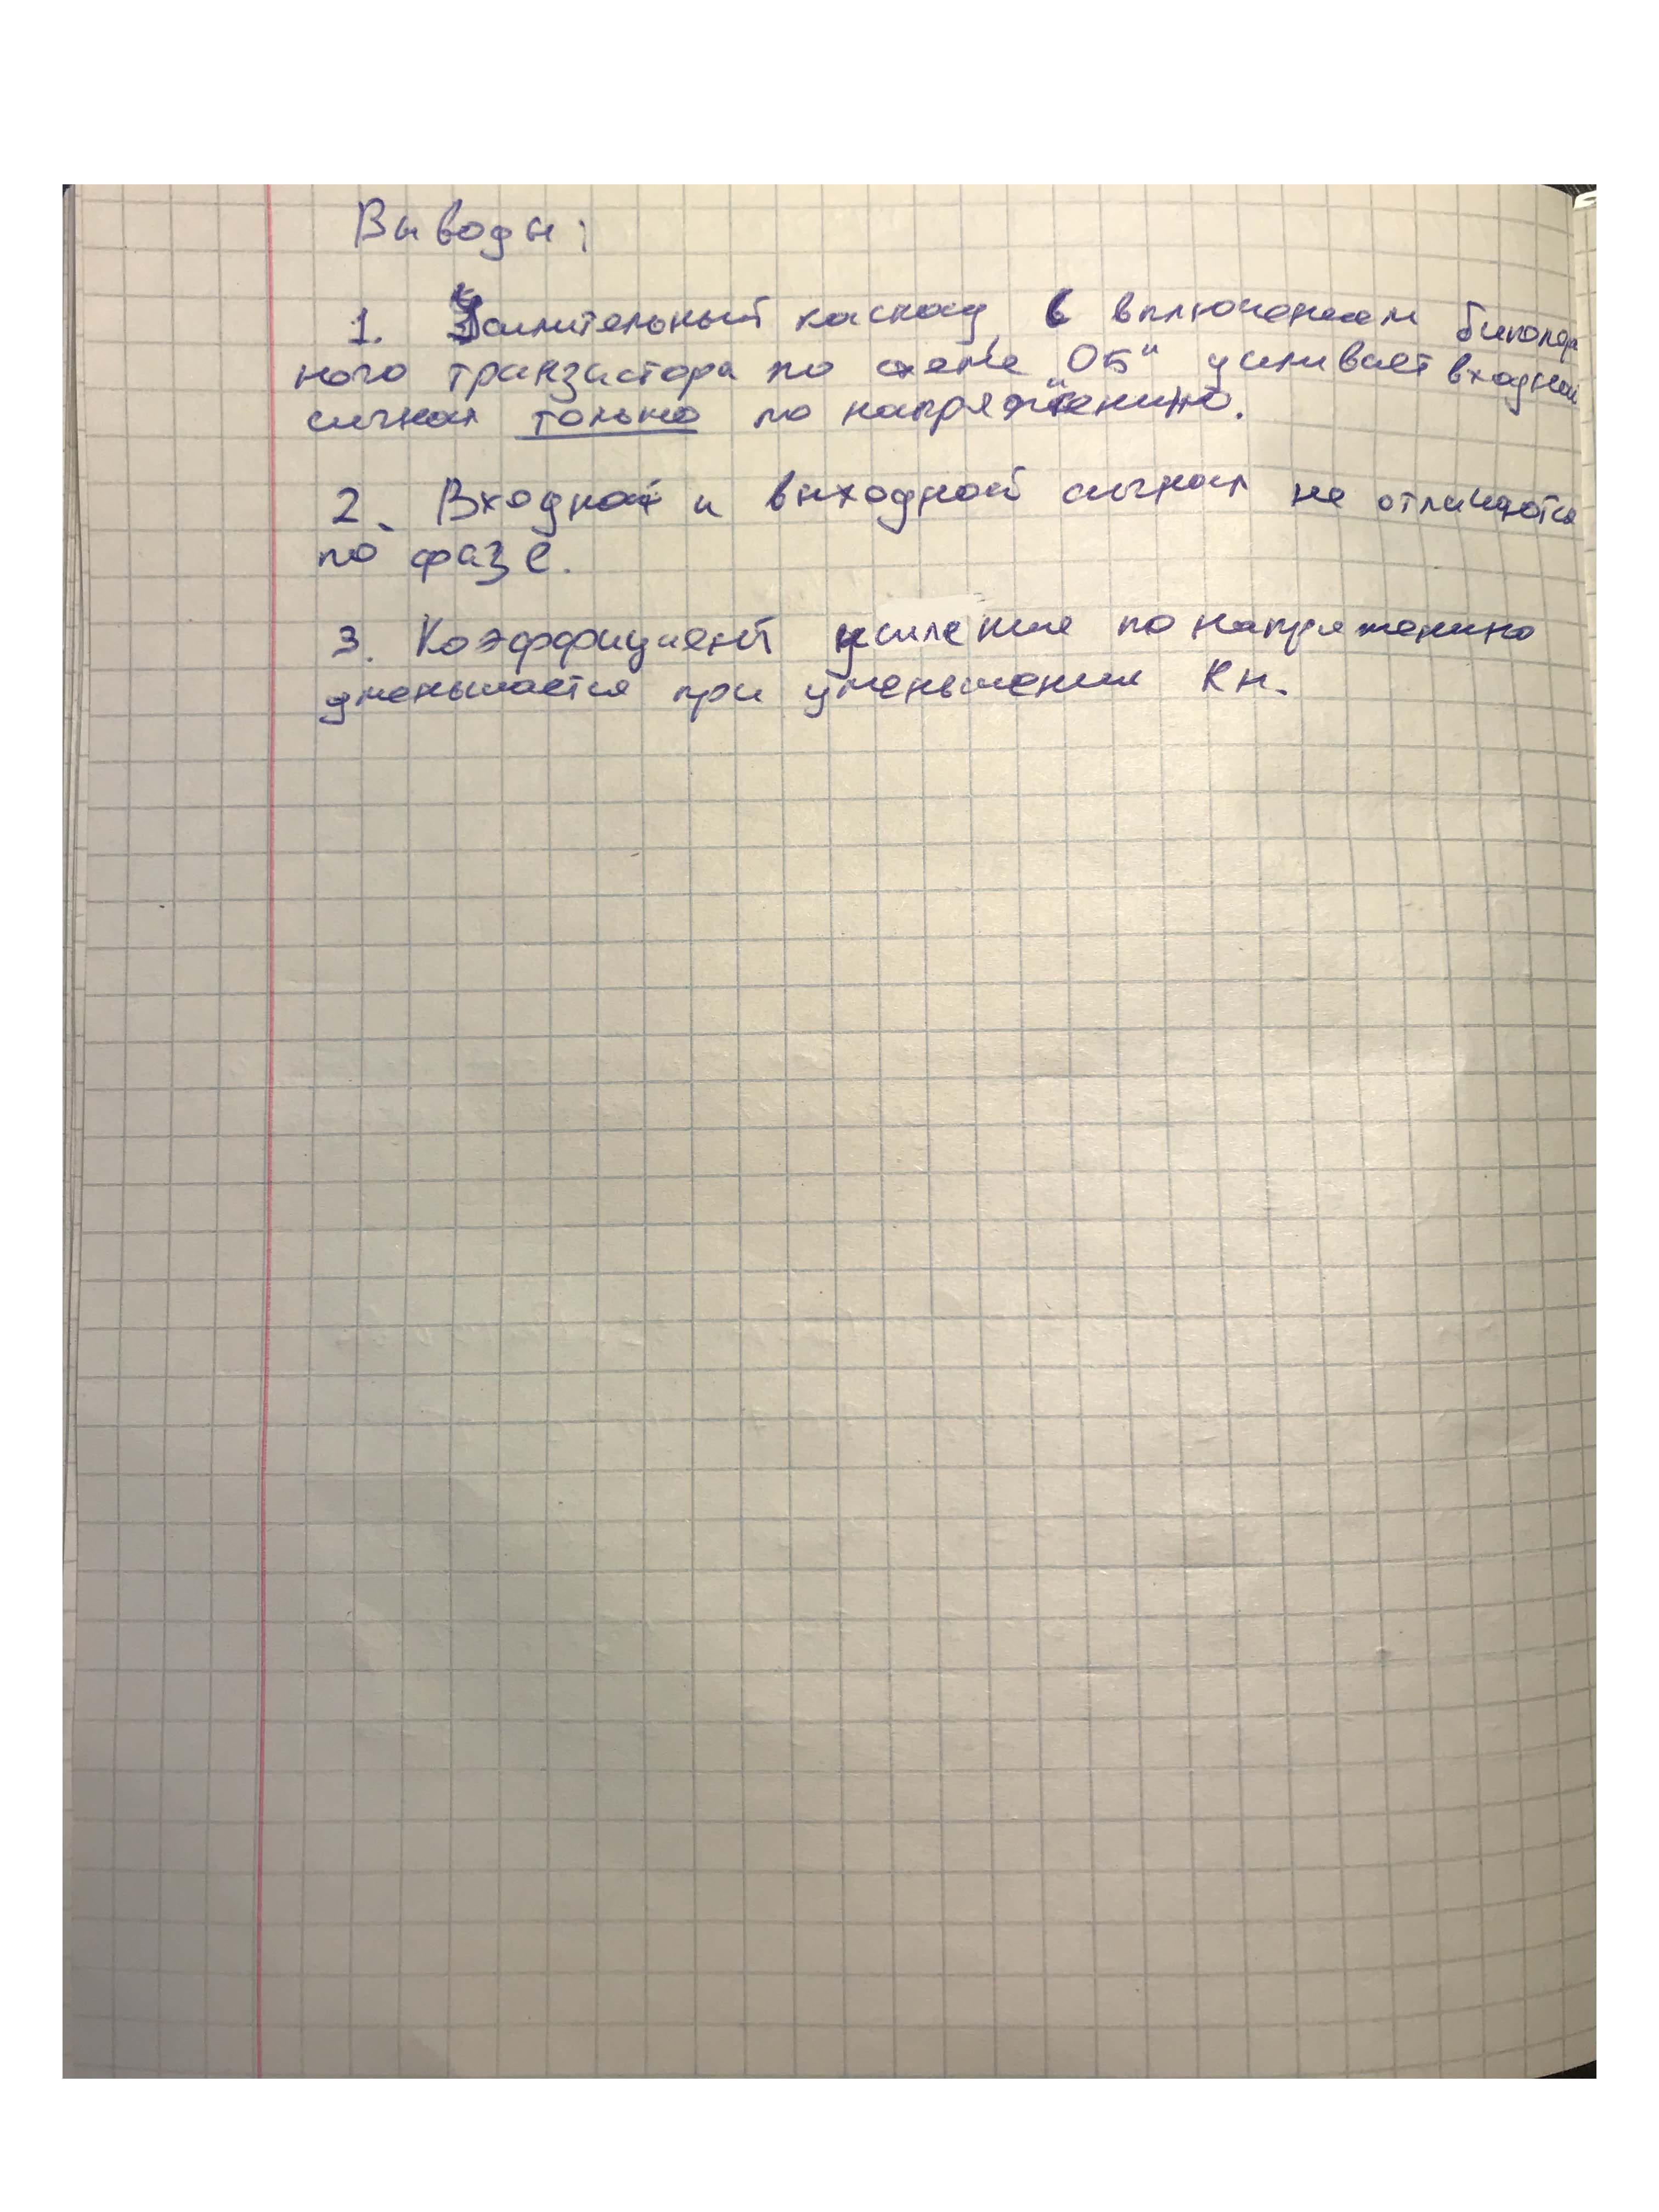 Выводы:
1. Усилительный каскад с включением биполяр
ного транзистора по схеме „ОБ“ усиливает входной
сигнал только по напряжению.
2. Входной и выходной сигнал не отличаются
по фазе.
3. Коэффициент усиление по напряжению
уменьшается при уменьшении Rн.